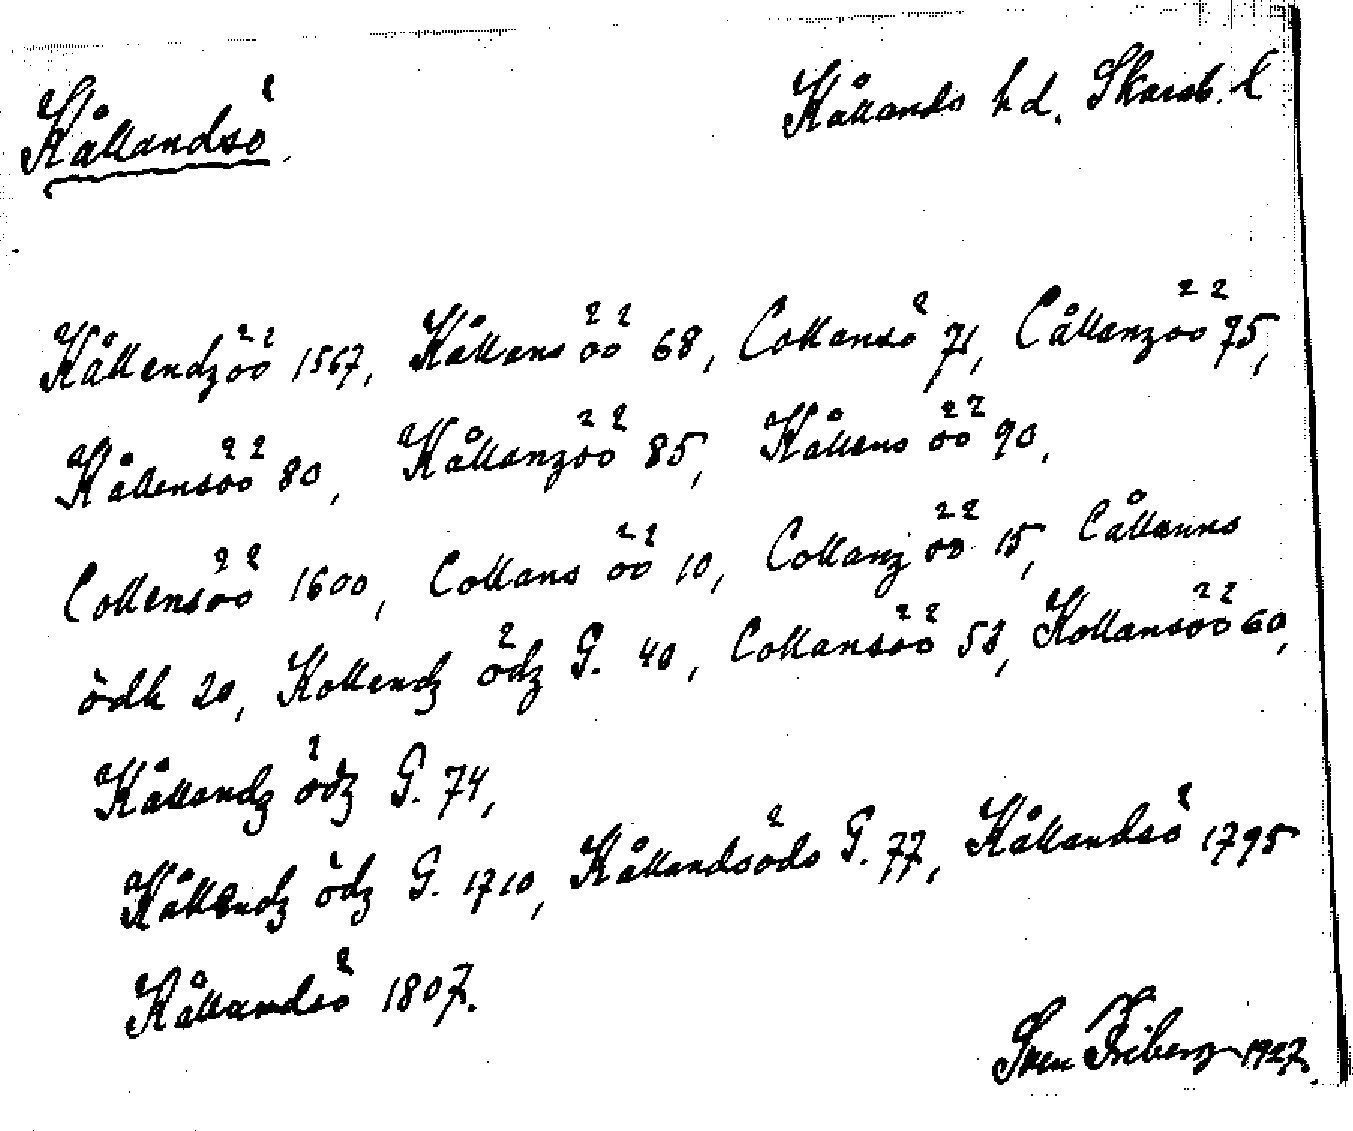 Kållandsö. Kållands hd. Skarab. l
Kållendzöö 1567, Kållans öö 68, Collansö 71, Cållanzöö 75,
Kållensöö 80, Kållanzöö 85, Kållens öö 90,
Collensöö 1600, Collans öö 10, Collanz öö 15, Cållanns
ödh 20, Kollendz ödz G. 40, Collansöö 58, Kollansöö 60,
Kållandz ödz G. 74,
Kållendz ödz G. 1710, Kållandsöds G. 77, Kållandsö 1795
Kållandsö 1807.
Sven Friberg 1927.